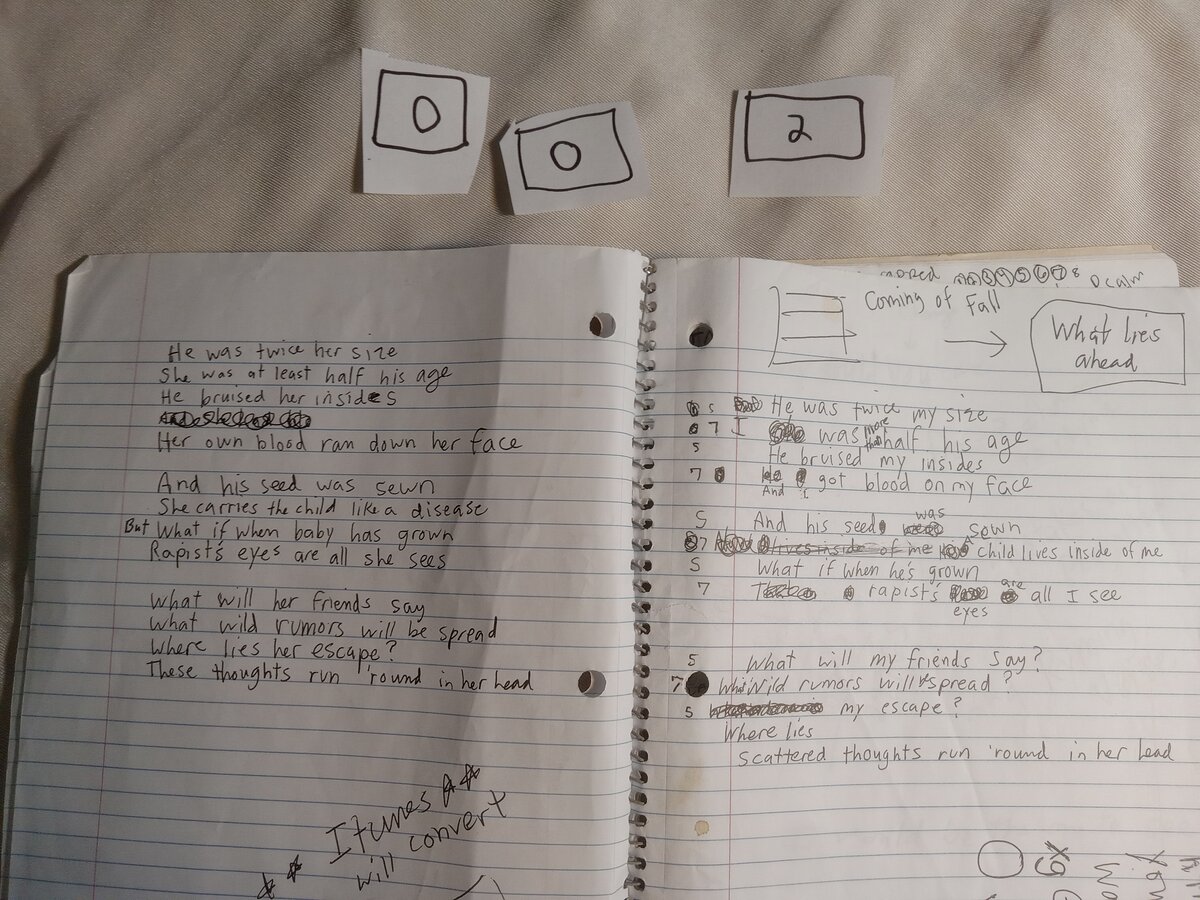 0
0
2
He was twice her size
She was at least half his age
He bruised her insides
Her own blood ran down her face
And his seed was sewn
She carries the child like a disease
But What if when baby has grown
Rapist's eyes are all she sees
What will her friends say
What wild rumors will be spread
Where lies her escape?
These thoughts run 'round in her head
** Itunes **
will convert
Coming of Fall
What lies
ahead
5 He was twice my size
7 I was more than half his age
5 He bruised my insides
7 And I got blood on my face
5 And his seed was sown
7 A child lives inside of me
5 What if when he's grown
7 rapist's eyes are all I see
5 What will my friends say?
7 Wild rumors will spread?
5 Where lies my escape?
scattered thoughts run 'round in her head